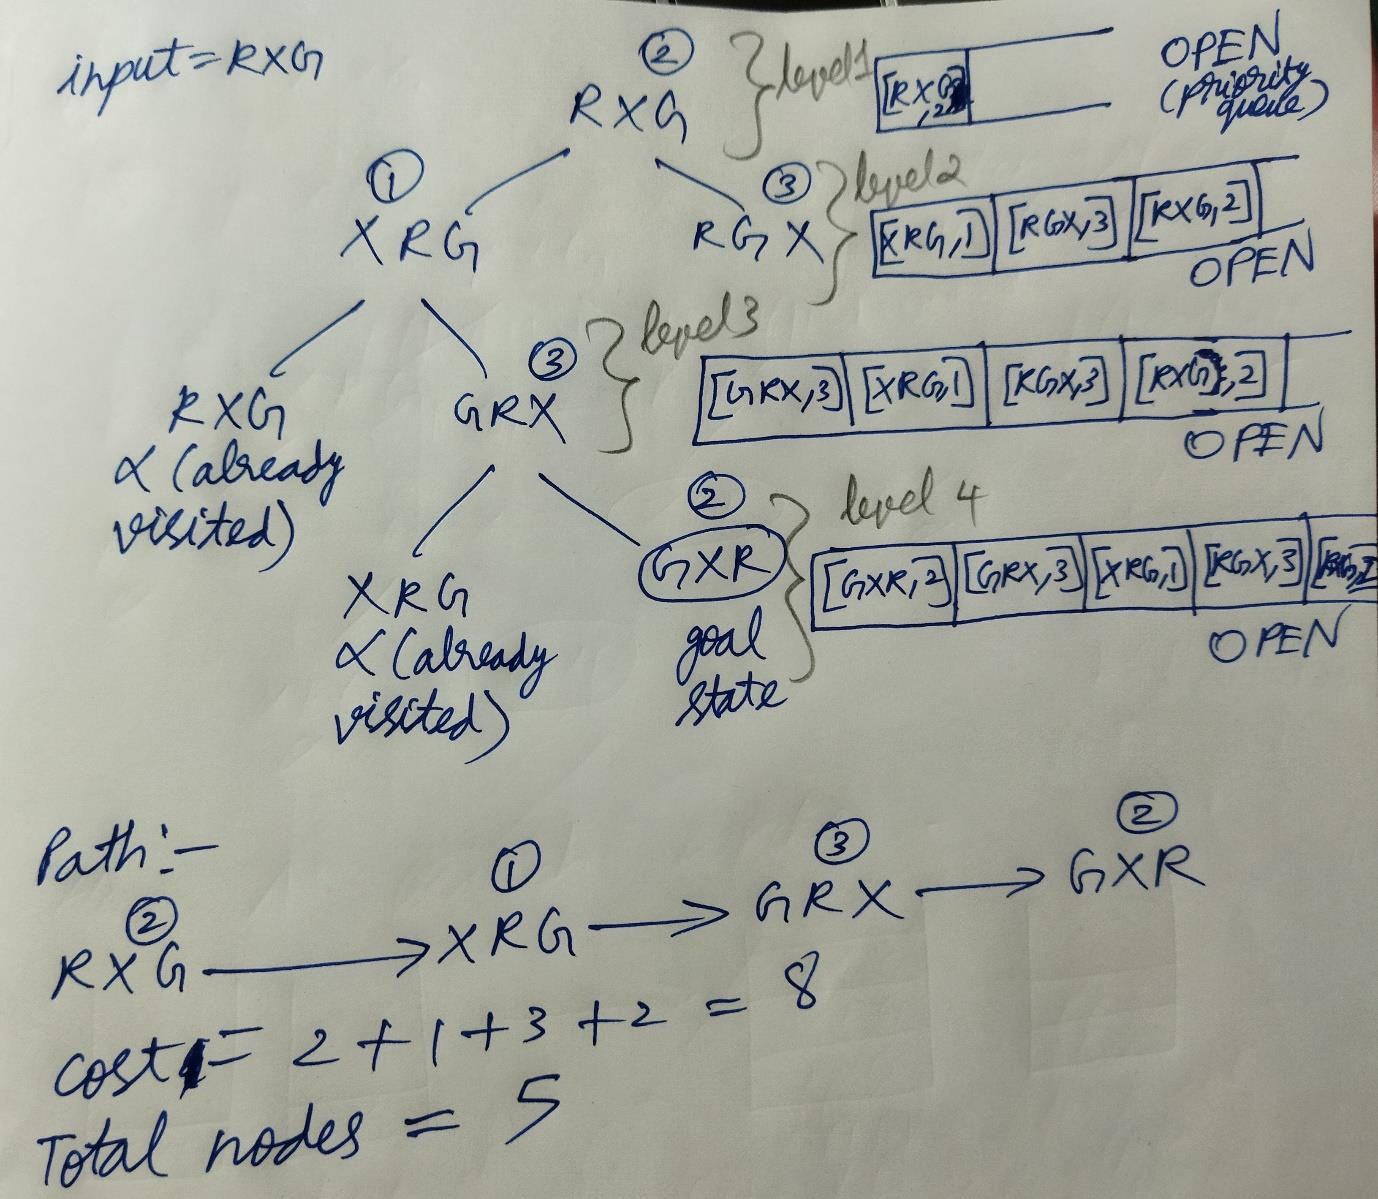 input = RXG
②
RXG
level 1
[RXG
,2]
OPEN
(priority
queue)
①
XRG
③
RGX
level 2
[XRG,1] [RGX,3] [RXG,2]
OPEN
RXG
∝ (already
visited)
③
GRX
level 3
[GRX,3] [XRG,1] [RGX,3] [RXG,2]
OPEN
XRG
∝ (already
visited)
②
GXR
goal
state
level 4
[GXR,2] [GRX,3] [XRG,1] [RGX,3]
OPEN
Path:-
② ① ③ ②
RXG → XRG → GRX → GXR
cost = 2 + 1 + 3 + 2 = 8
Total nodes = 5